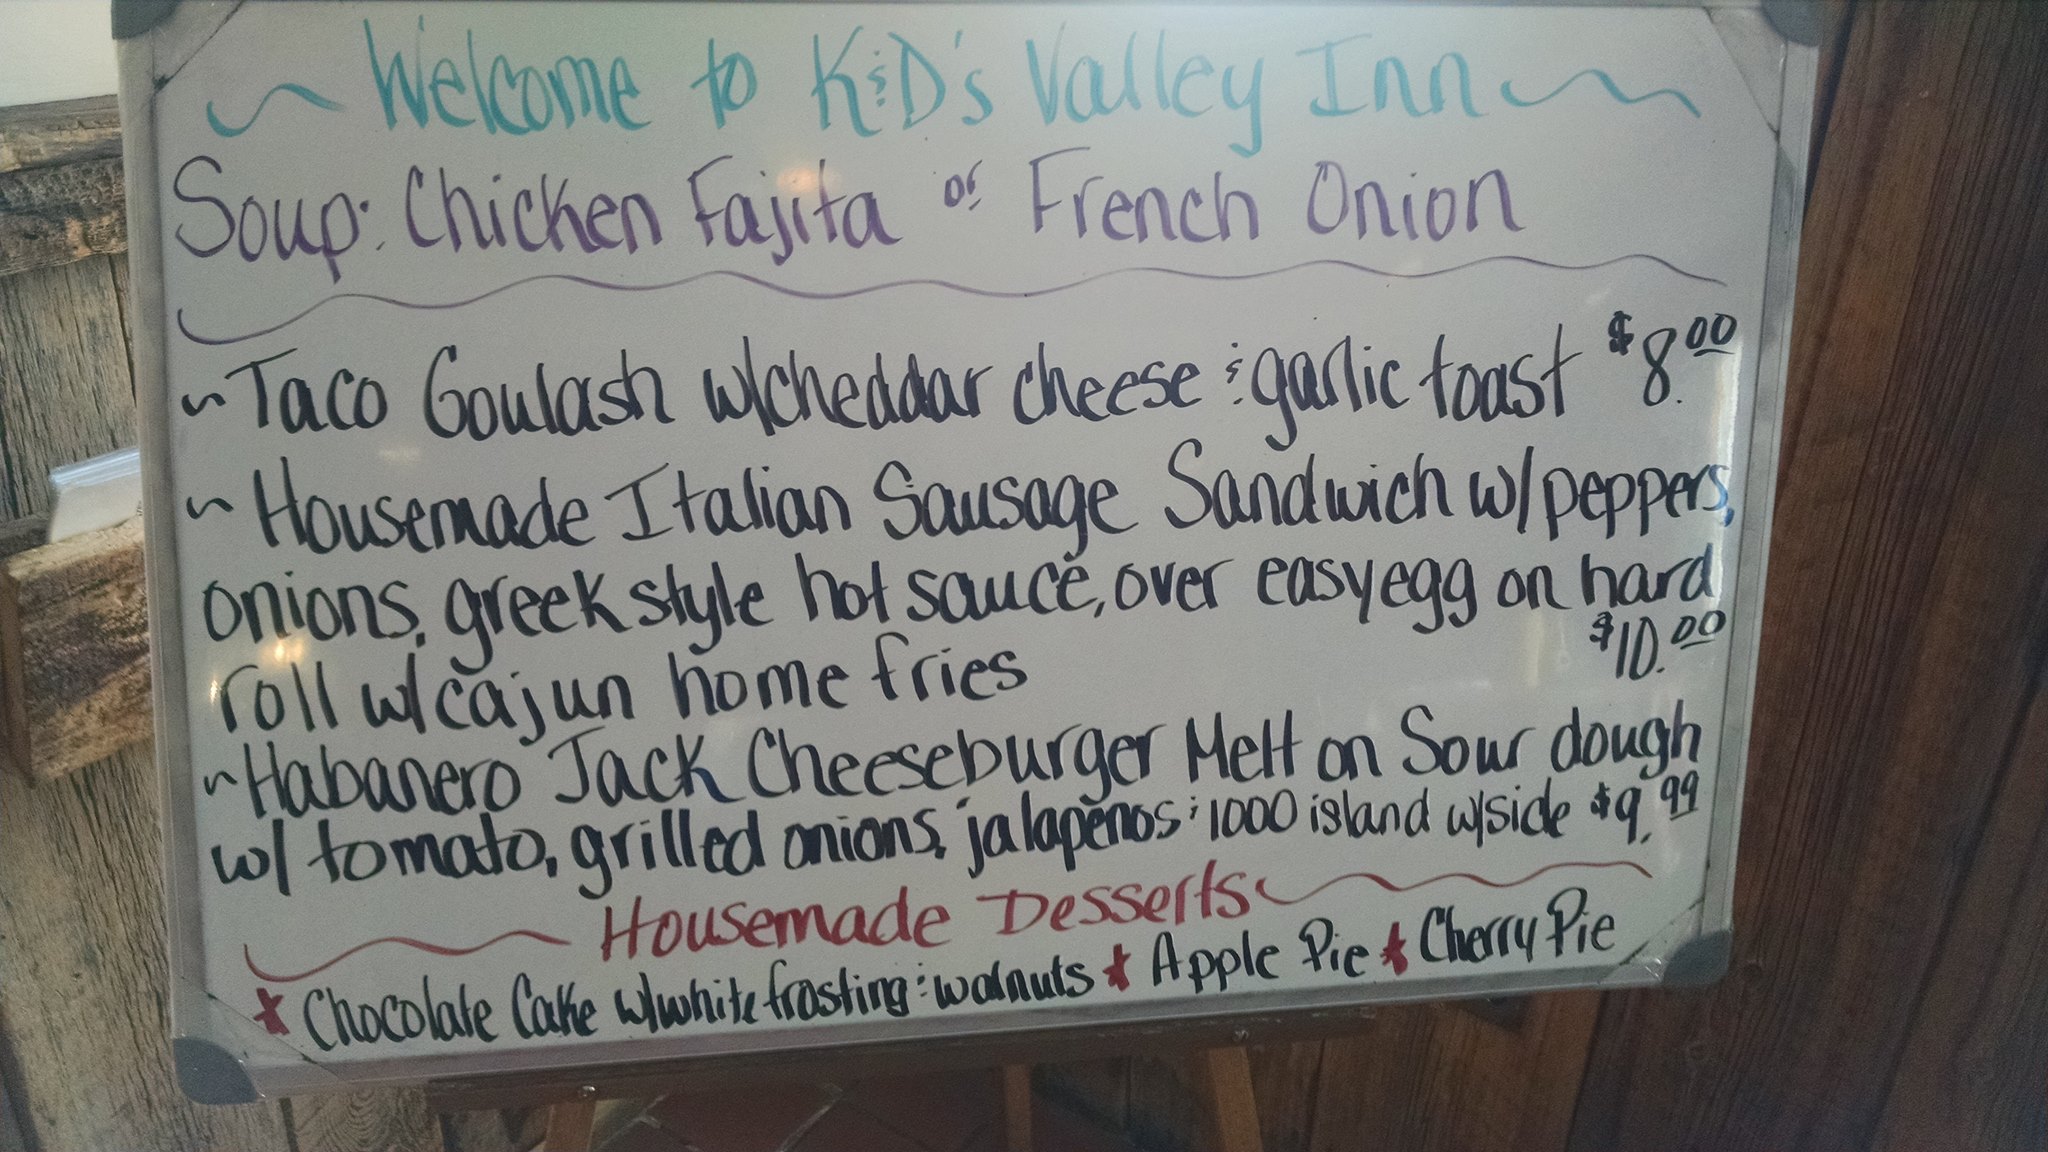 ~ Welcome to K&D's Valley Inn ~
Soup: Chicken Fajita or French Onion
~ Taco Goulash w/cheddar cheese & garlic toast $8.00
~ Housemade Italian Sausage Sandwich w/peppers,
onions, greek style hot sauce, over easy egg on hard
roll w/cajun home fries $10.00
~ Habanero Jack Cheeseburger Melt on Sour dough
w/ tomato, grilled onions, jalapeños & 1000 island w/side $9.99
Housemade Desserts
* Chocolate Cake w/white frosting & walnuts * Apple Pie * Cherry Pie